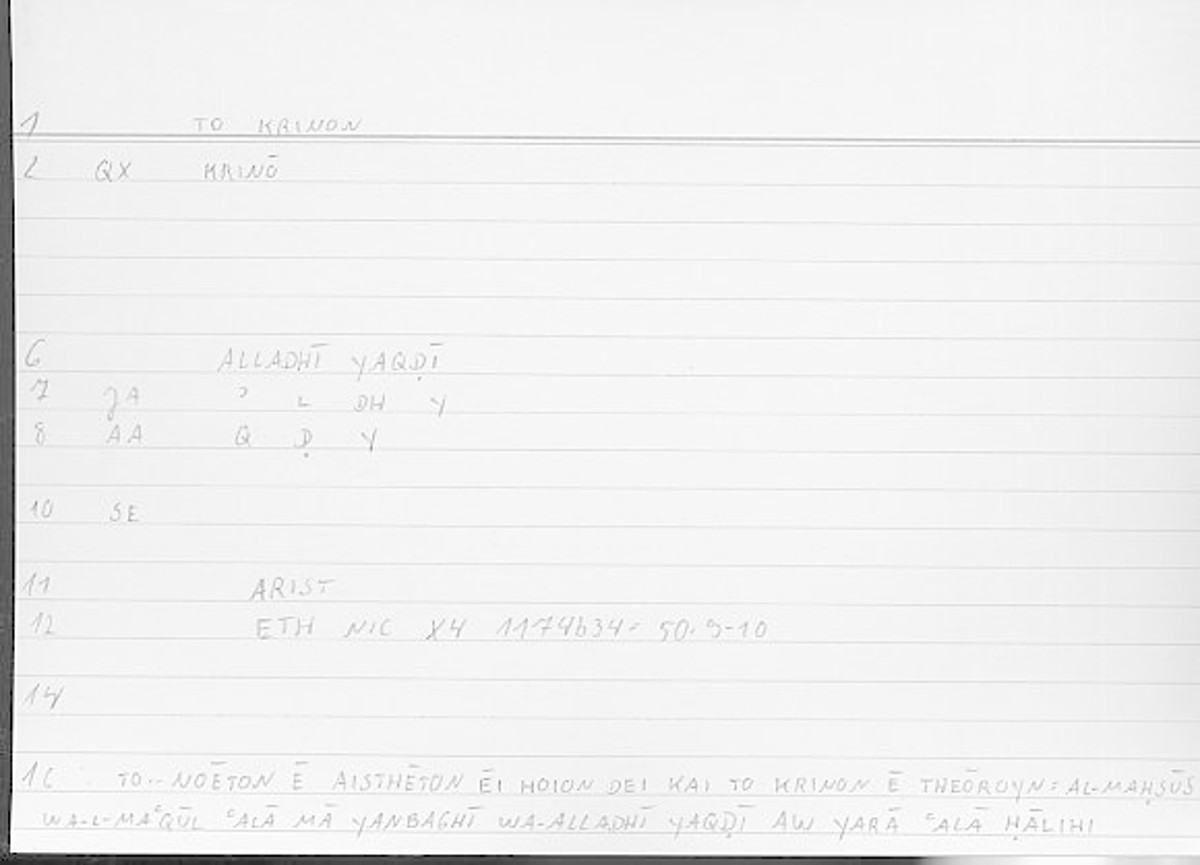 1 TO KRINON
2 QX KRINŌ
6 ALLADHĪ YAQḌĪ
7 JA ʾ L DH Y
8 AA Q Ḍ Y
10 SE
11 ARIST
12 ETH NIC X4 1174b34= 50.9-10
14
16 TO.. NOĒTON Ē AISTHĒTON ĒI HOION DEI KAI TO KRINON Ē THEŌROYN = AL-MAḤSŪS
WA-L-MAʿQŪL ʿALĀ MĀ YANBAGHĪ WA-ALLADHĪ YAQḌĪ AW YARĀ ʿALĀ ḤĀLIHI